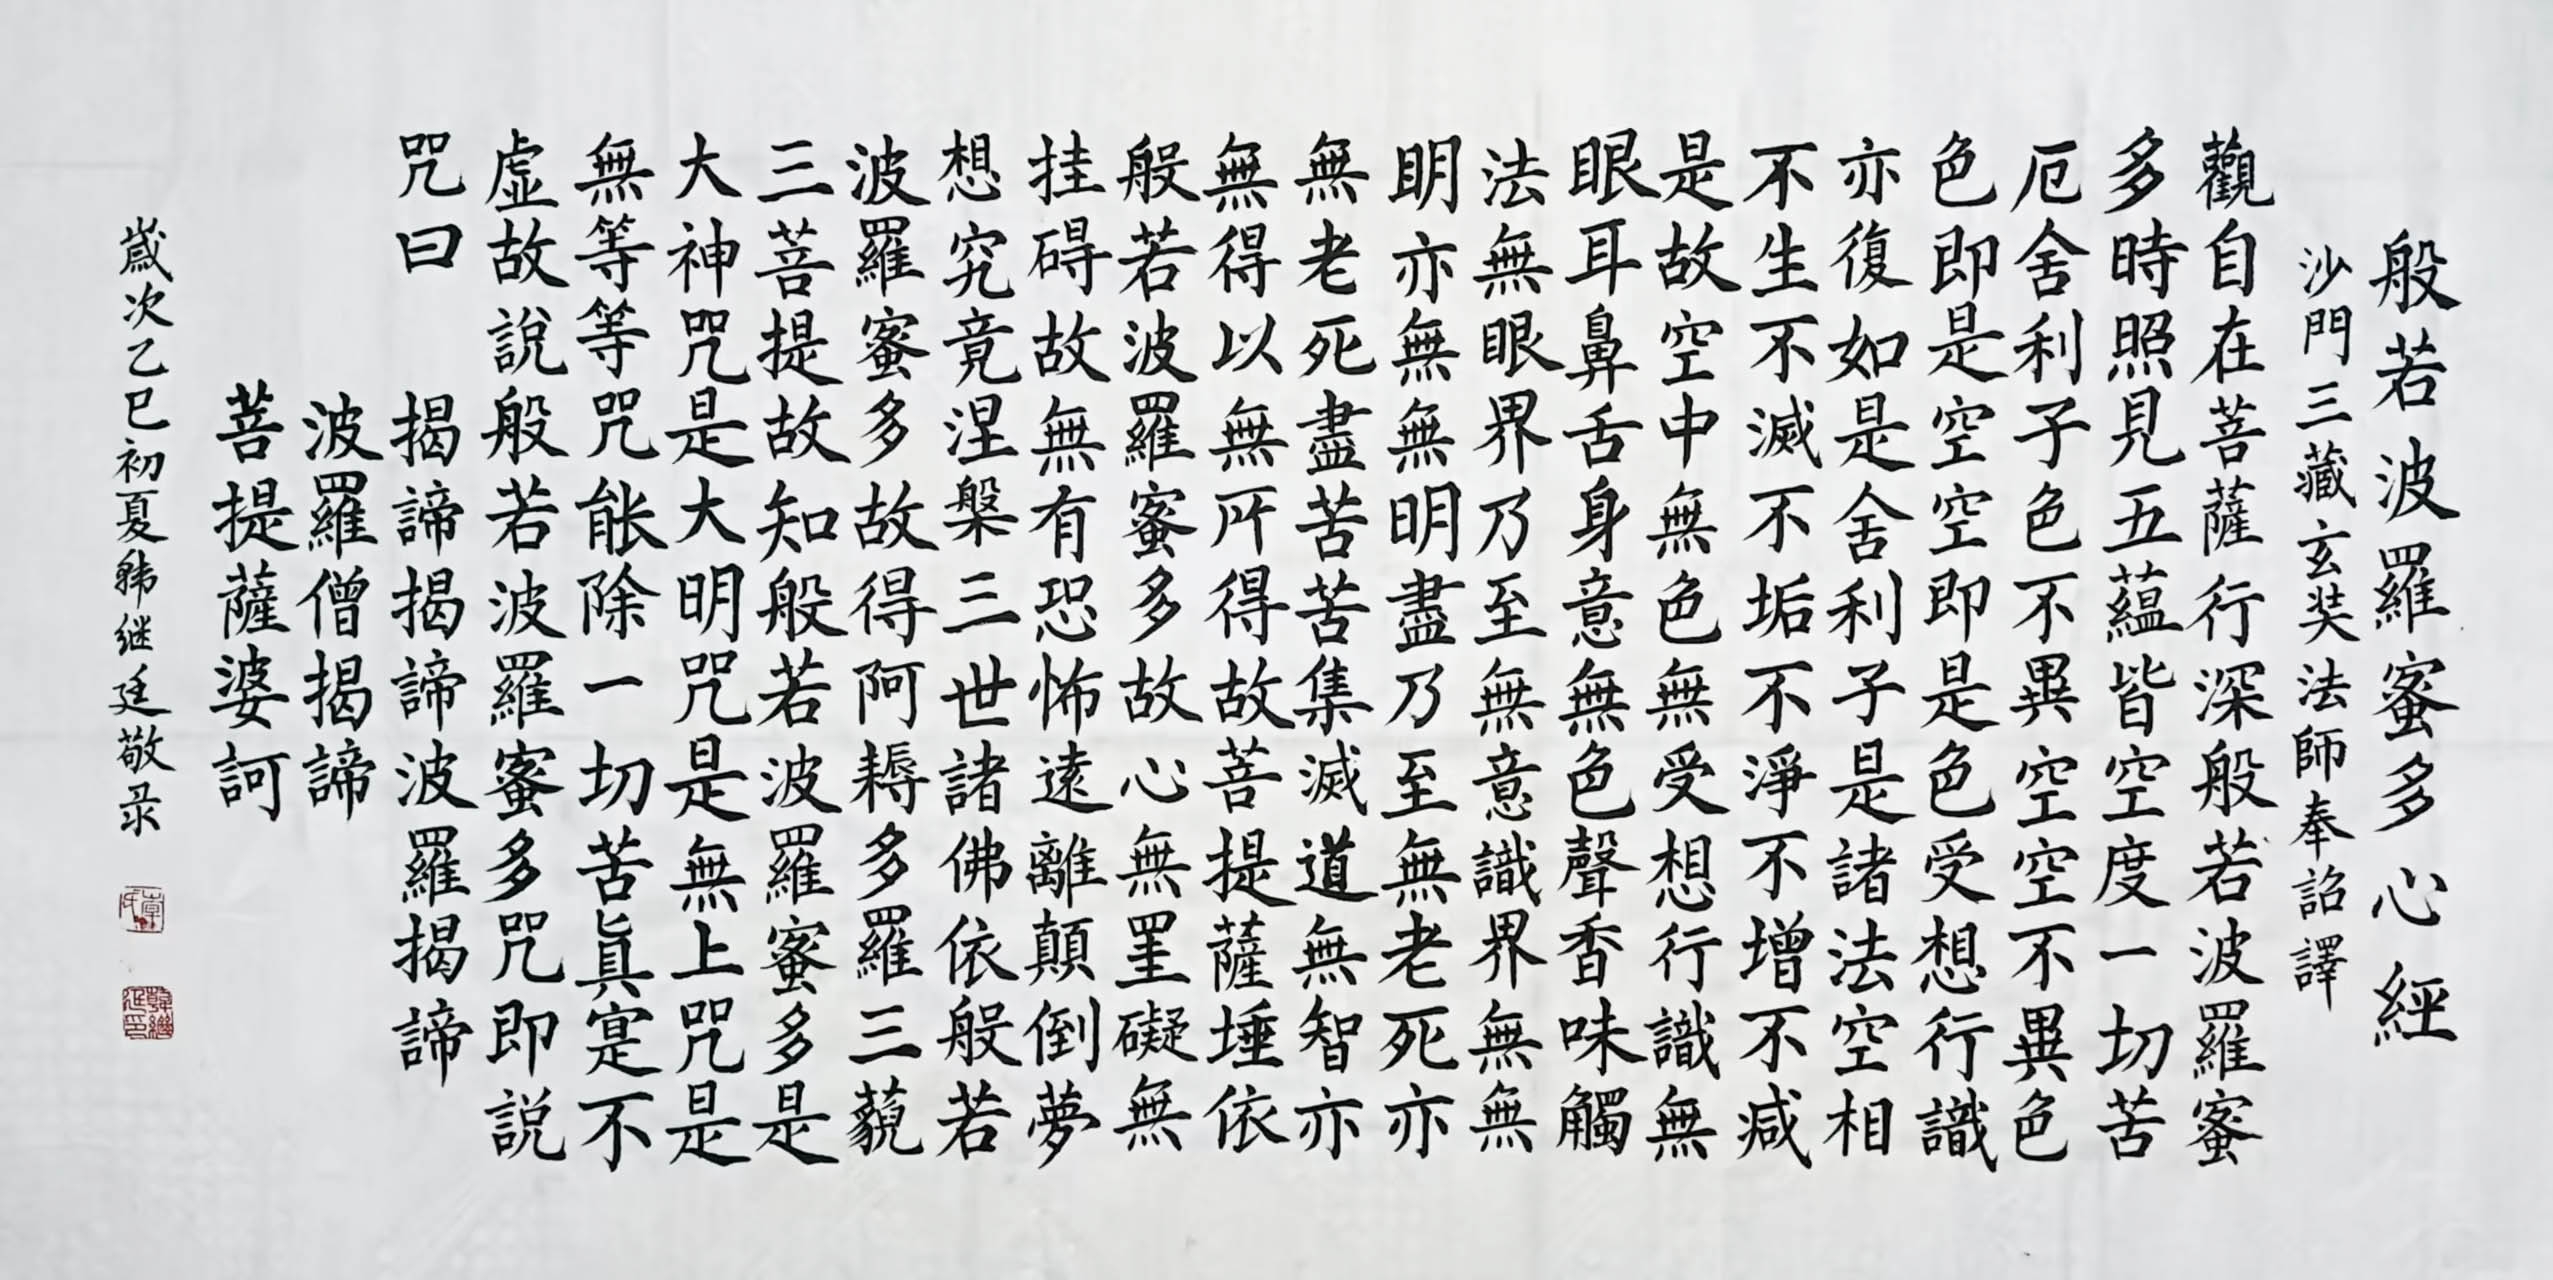 般若波羅蜜多心經
沙門三藏玄奘法師奉詔譯
觀自在菩薩行深般若波羅蜜
多時照見五蘊皆空度一切苦
厄舍利子色不異空空不異色
色即是空空即是色受想行識
亦復如是舍利子是諸法空相
不生不滅不垢不淨不增不減
是故空中無色無受想行識無
眼耳鼻舌身意無色聲香味觸
法無眼界乃至無意識界無無
明亦無無明盡乃至無老死亦
無老死盡苦苦集滅道無智亦
無得以無所得故菩提薩埵依
般若波羅蜜多故心無罣礙無
挂碍故無有恐怖遠離顛倒夢
想究竟涅槃三世諸佛依般若
波羅蜜多故得阿耨多羅三藐
三菩提故知般若波羅蜜多是
大神咒是大明咒是無上咒是
無等等咒能除一切苦真寔不
虛故說般若波羅蜜多咒即説
咒曰　揭諦揭諦波羅揭諦
波羅僧揭諦
菩提薩婆訶
歲次乙巳初夏韩继廷敬录